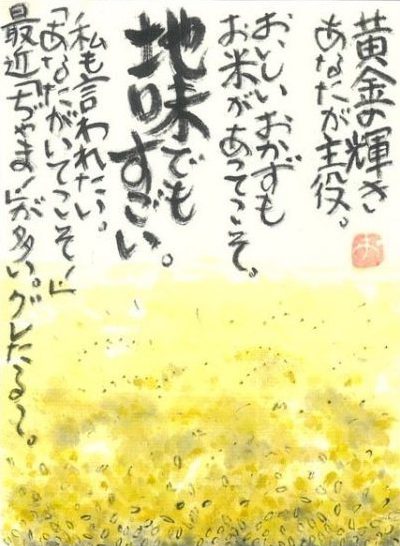 黄金の輝き
あなたが主役。
おいしいおかずも
お米があってこそ。
地味でも
すごい。
私も言われたい。
「あなたがいてこそ!」
最近「ぢゃま!」が多い。グレたる〜。